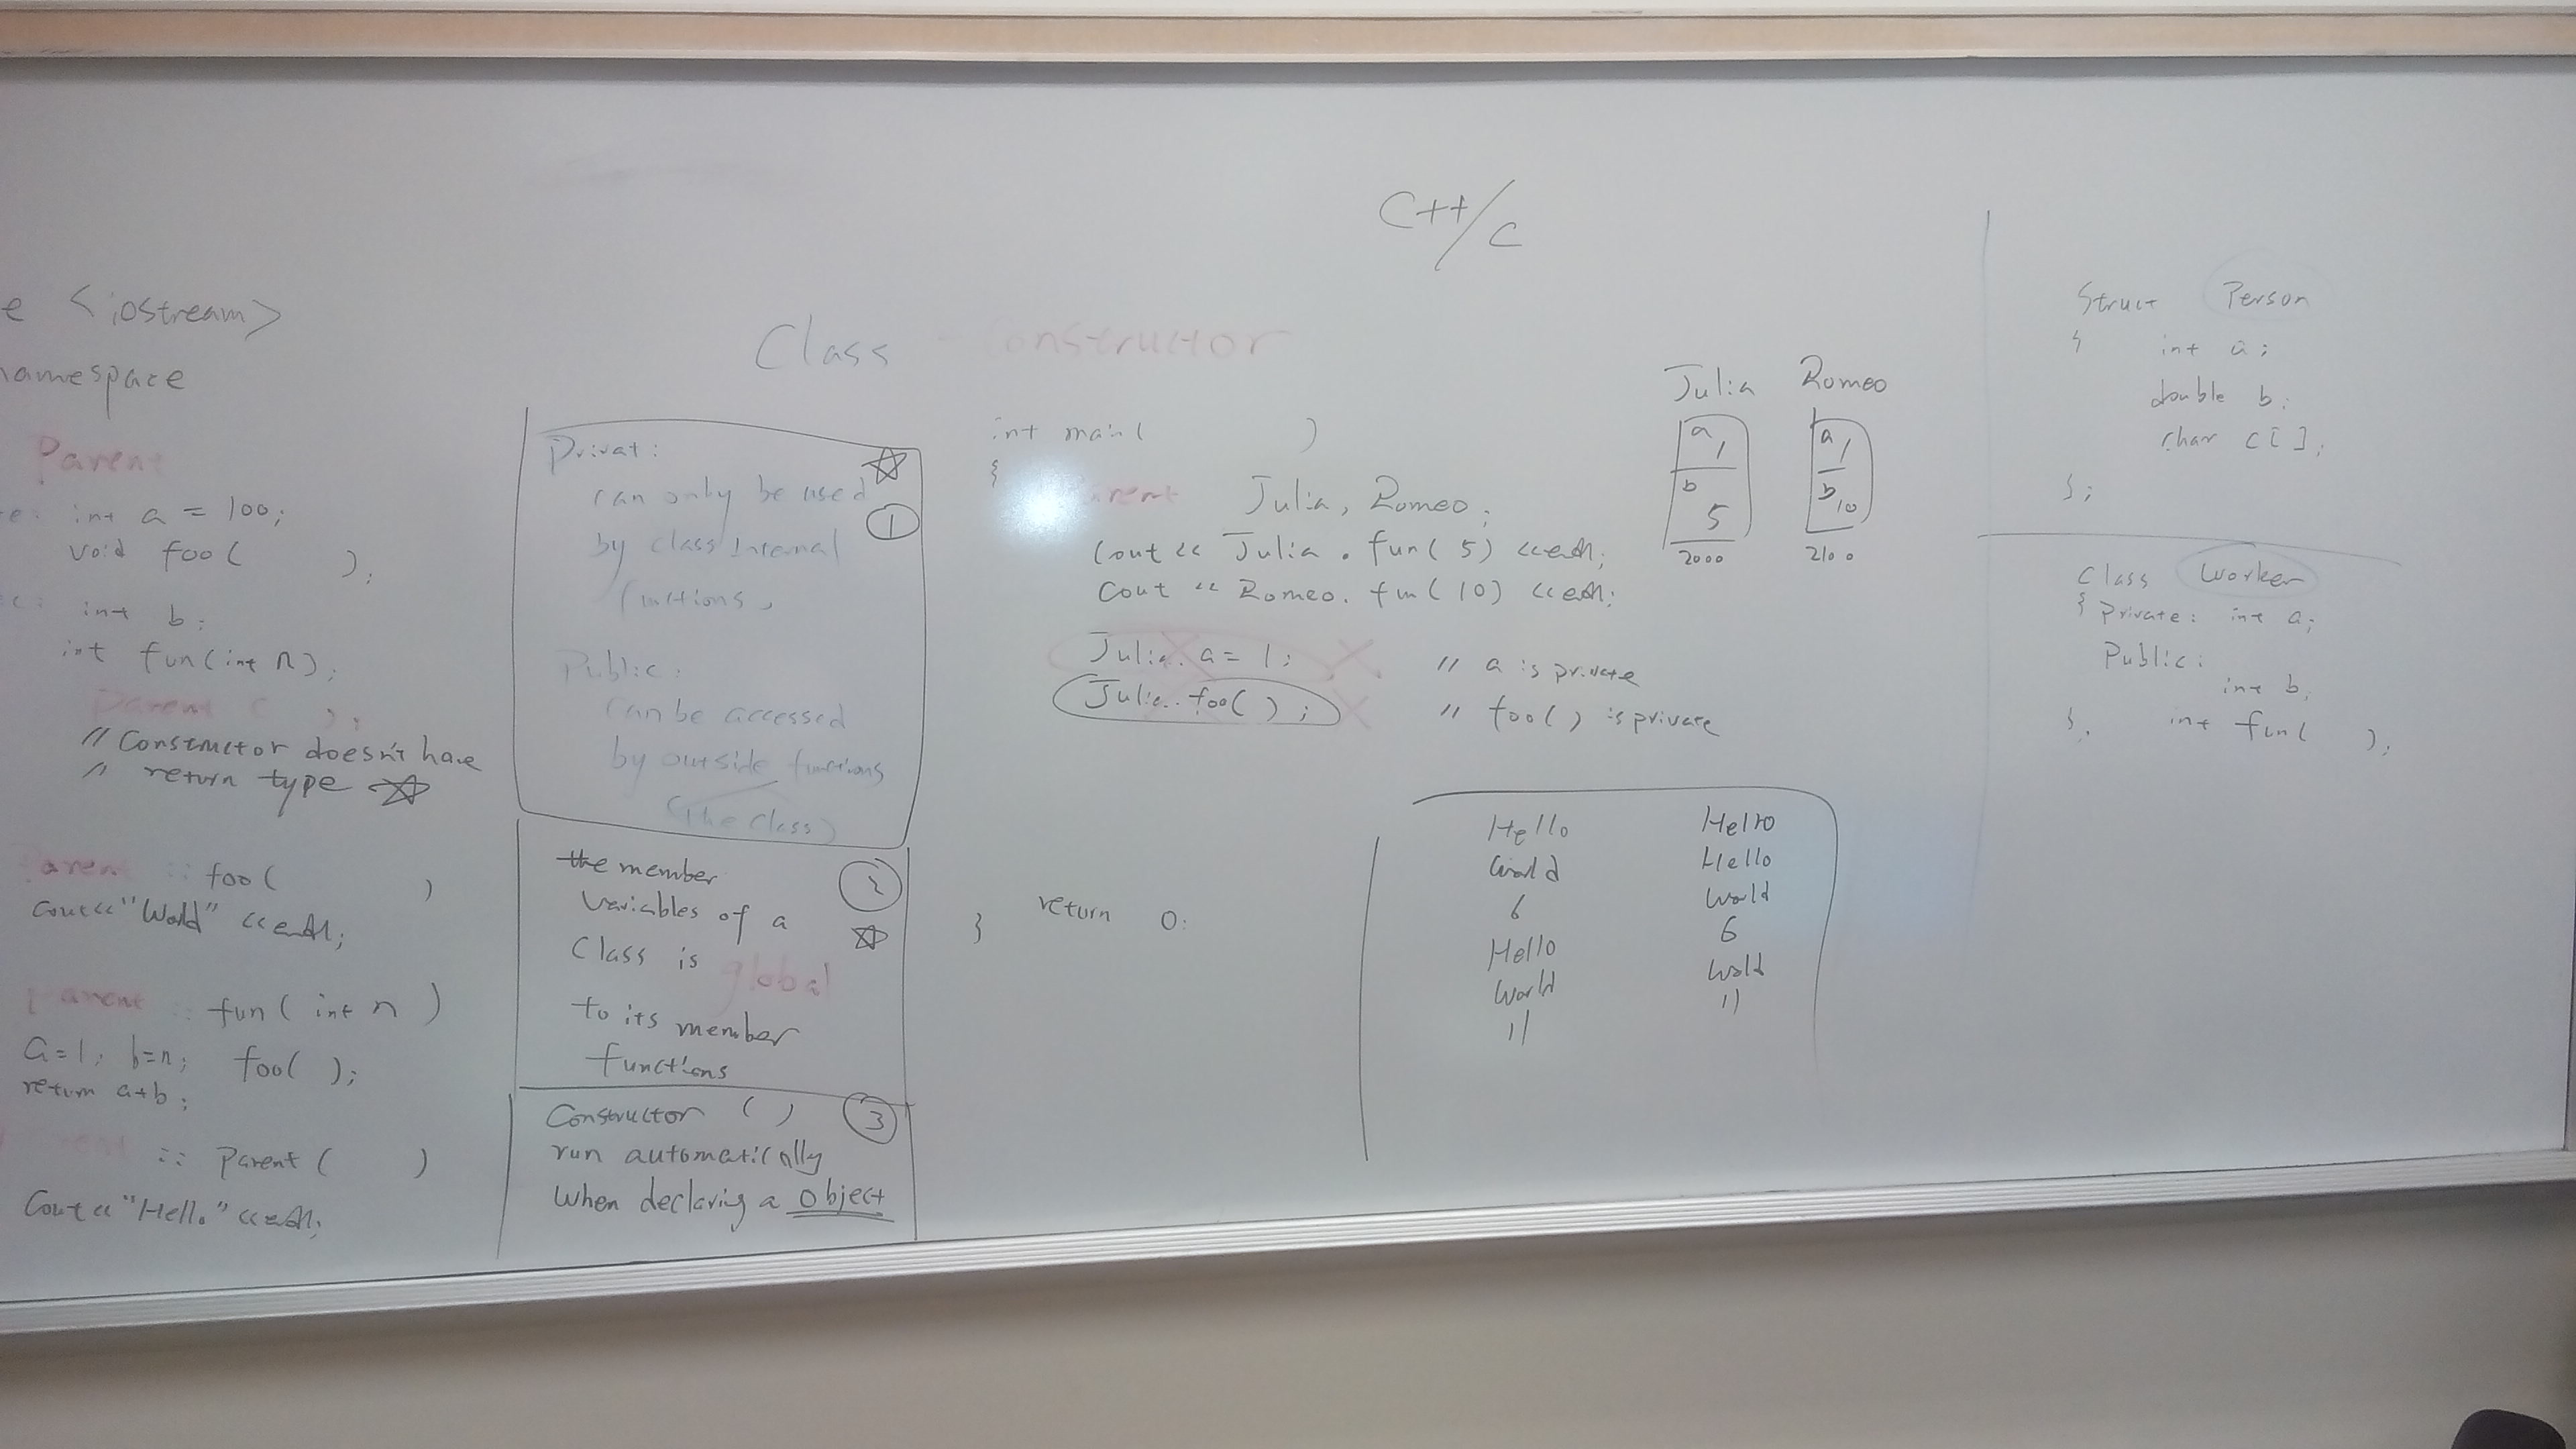 C++/C
Class Constructor
e <iostream>
namespace
Parent
e: int a = 100;
void foo( );
c: int b;
int fun(int n);
Parent ( );
// Constructor doesn't have
// return type ☆
Parent :: foo( )
cout<<"World" <<endl;
Parent :: fun( int n )
a=1; b=n; foo( );
return a+b;
:: Parent( )
Cout<<"Hello" <<endl;
Privat: ☆
can only be used
by class internal ①
functions,
Public:
can be accessed
by outside functions
(the class)
the member ②
variables of a ☆
Class is global
to its member
functions
Constructor ( ) ③
run automatically
when declaring a Object
int main( )
{
Parent Julia, Romeo;
Cout << Julia . fun( 5) <<endl;
Cout << Romeo. fun( 10) <<endl;
Julia. a = 1; X // a is private
Julia. foo( ); X // foo( ) is private
return 0;
}
Julia Romeo
a 1 a 1
b 5 b 10
2000 2100
Hello Hello
World Hello
6 World
Hello 6
World World
11 11
Struct Person
{ int a;
double b;
char c[ ];
};
Class Worker
{ Private: int a;
Public:
int b;
}; int fun( );